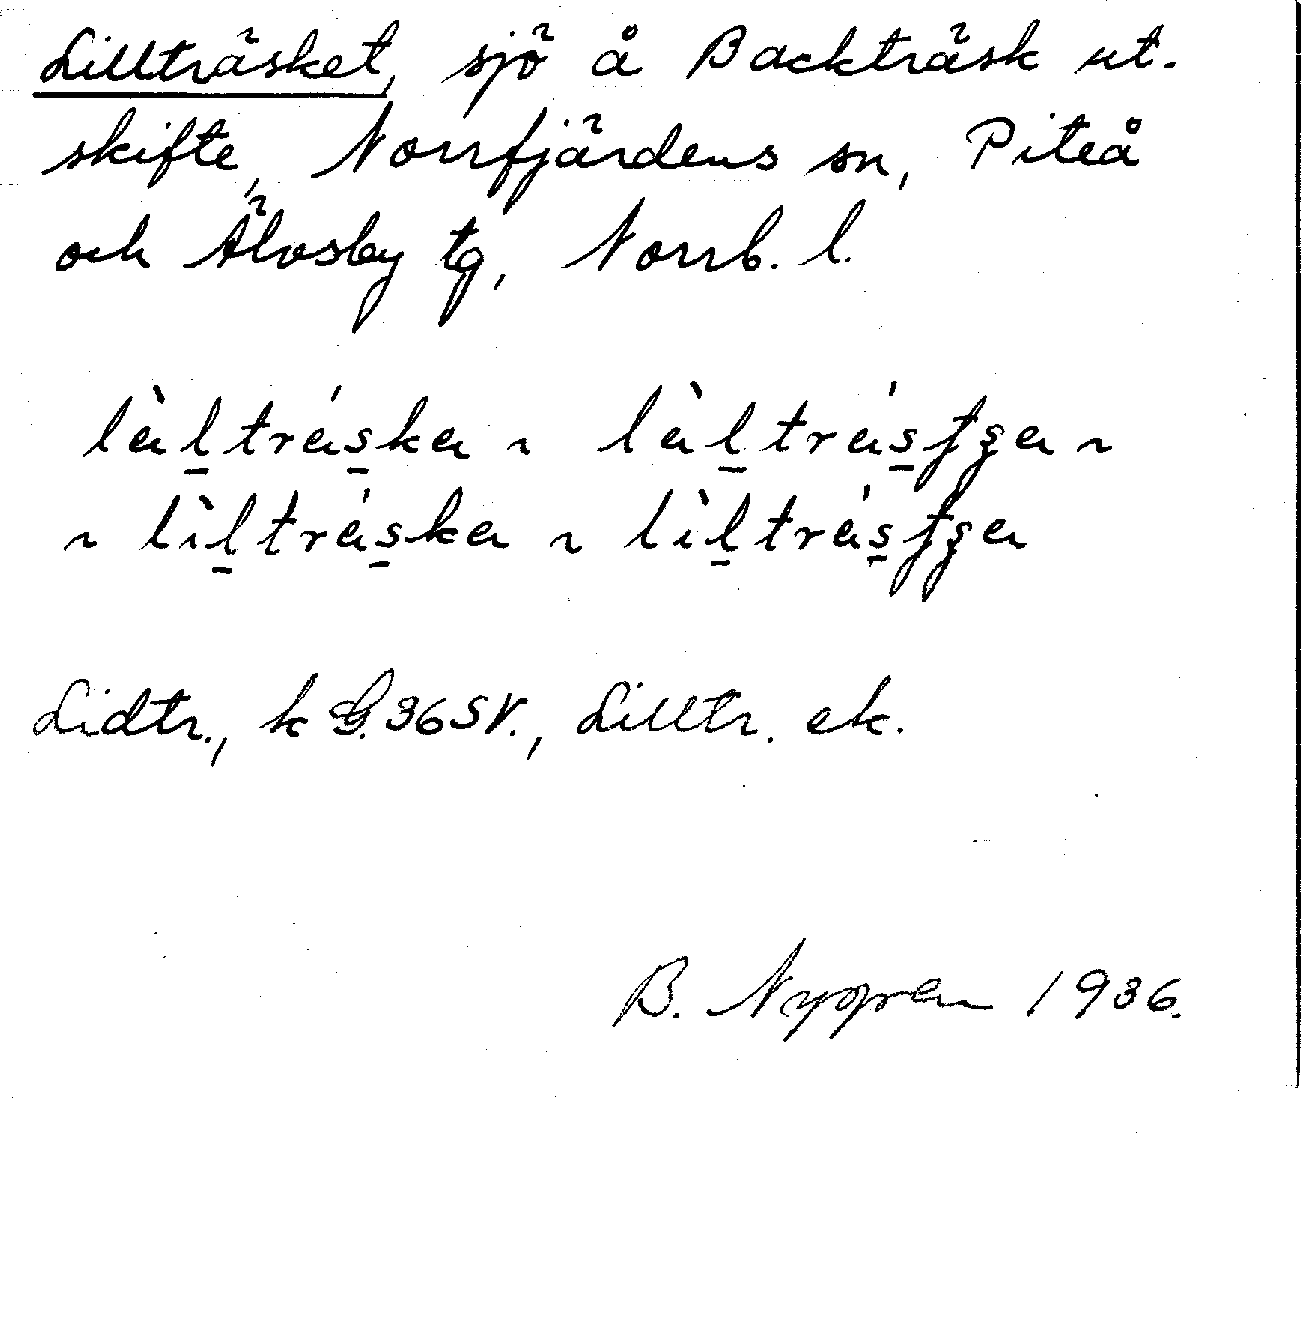 Lillträsket, sjö å Backträsk ut-
skifte, Norrfjärdens sn, Piteå
och Älvsby tg, Norrb. l.
lὰl̠trás̠ka ~ lὰl̠trás̠ʃʒa ~
~ lìl̠trás̠ka ~ lìl̠trás̠ʃʒa
Lidtr., k G. 36 SV., Lilltr. ek.
B. 1936.